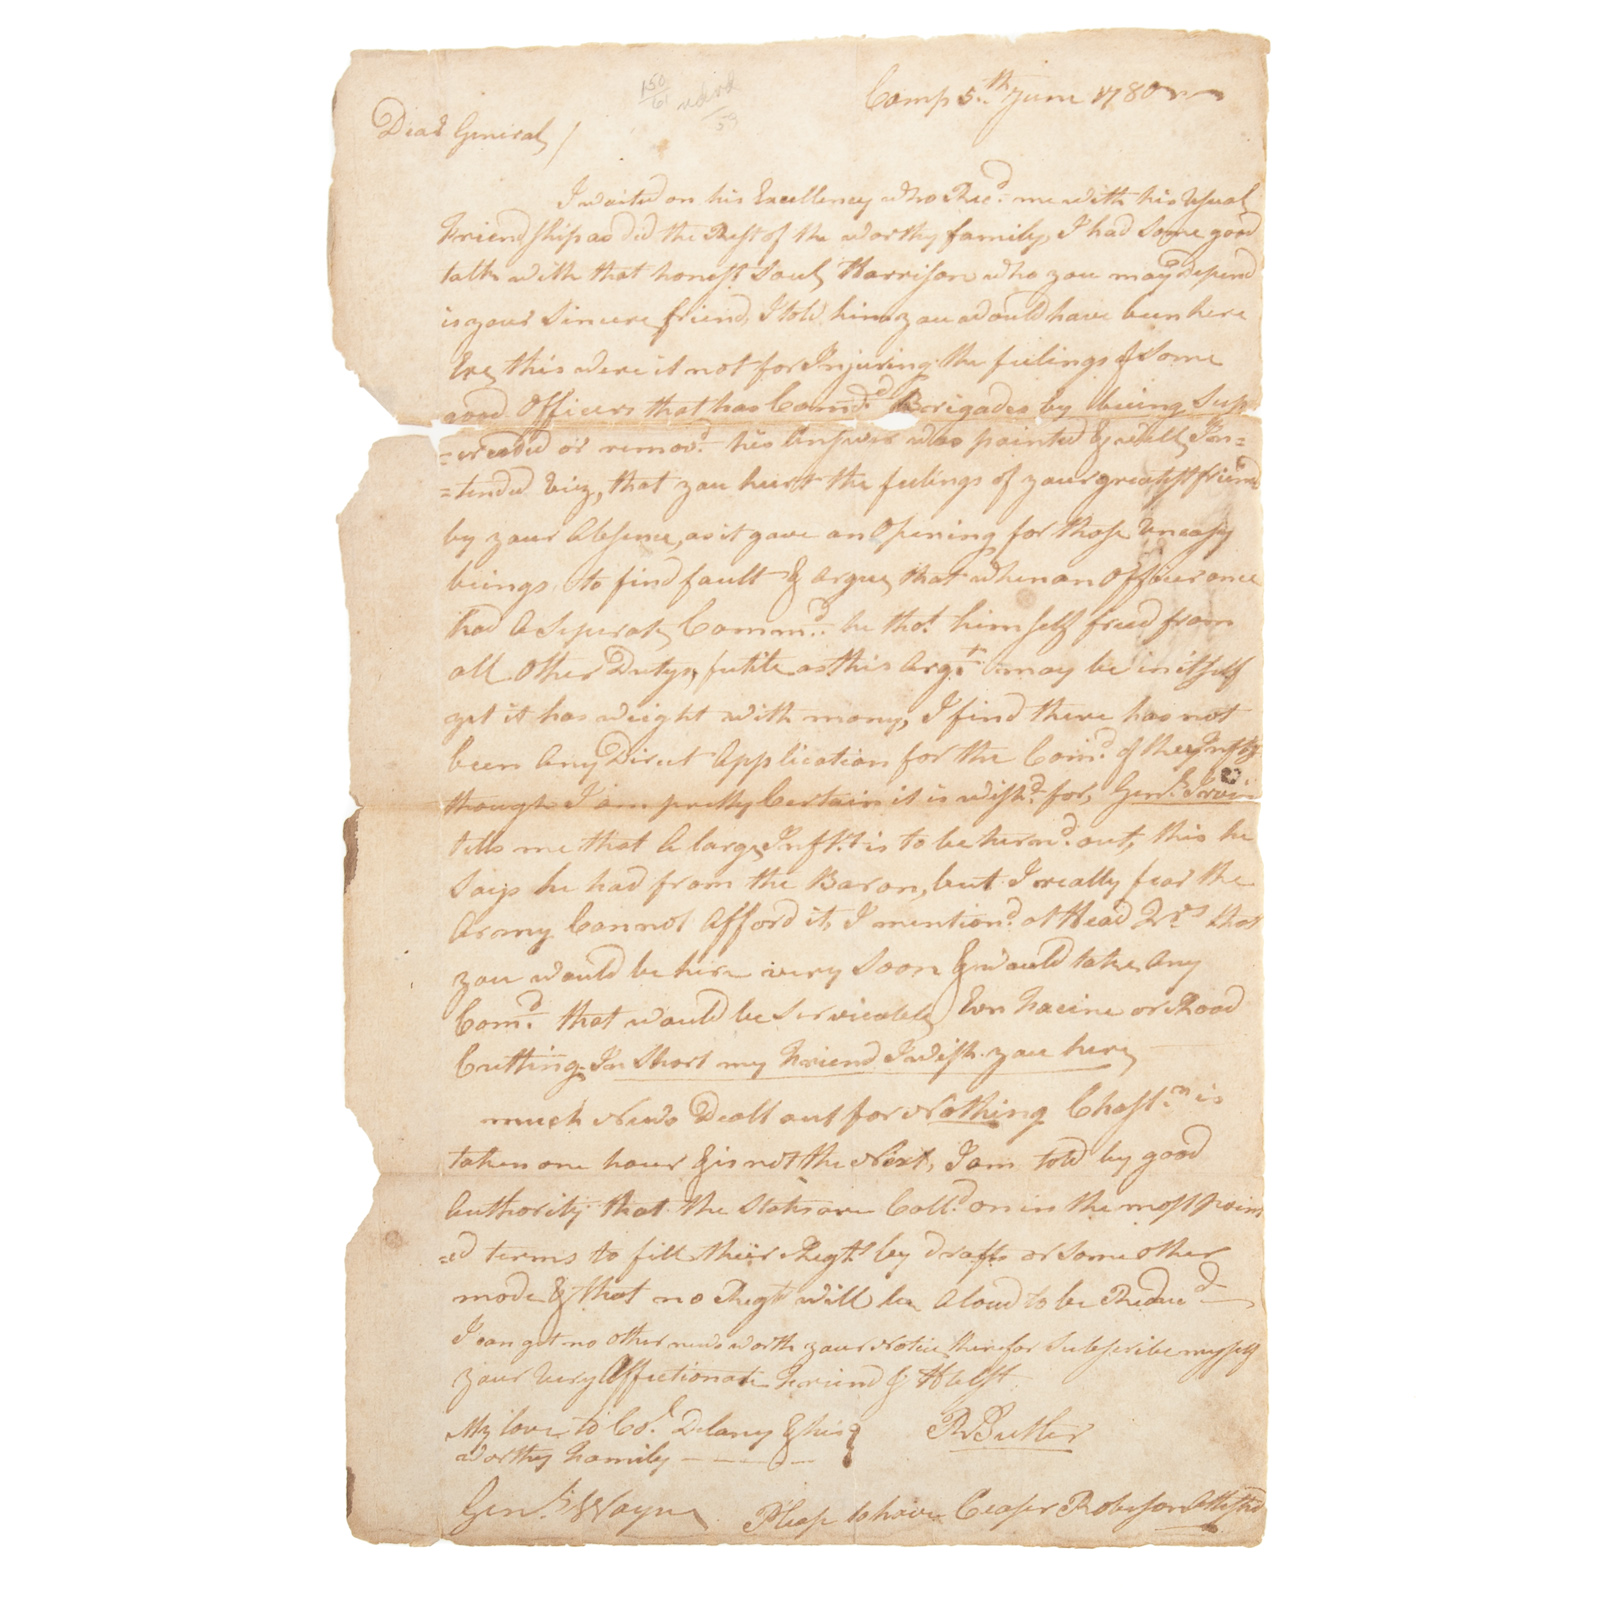 150
61
59
Camp 5.th June 1780
Dear General,/
I waited on his Excellency who Rec.d me with his Usual
Friendship as did the Rest of the worthy family, I had some good
talk with that honest Soul Harrison who you may depend
is your Sincere friend, I told him you would have been here
Ere this were it not for Injuring the feelings of Some
good Officers that has Com.d Brigades by being Sup
=erceded or remov.d his Answer was pointed & well In=
=tended Viz, that you hurt the feelings of your greatest friend
by your Absence, as it gave an Opening for those Uneasy
beings to find fault & argue that when an Officer once
had a Seperate Comm.d he tho.t himself freed from
all other Dutys, futile as this Arg.t may be in itself
yet it has weight with many, I find there has not
been Any Direct Application for the Com.d of the Inf.ty
though I am pretty Certain it is wish.d for, Gen.l Irvin
tells me that a large Inf.t is to be turn.d out, this he
Says he had from the Baron, but I really fear the
Army Cannot Afford it, I mention.d at Head Q.rs that
you would be here very Soon & would take Any
Com.d that would be Servicable, Evn facine or Road
Cutting, In Short my Friend I wish you here,
much News Dealt out for Nothing Chast.n is
taken one hour & is not the Next, I am told by good
Authority that the States are Call.d on in the most point
=ed terms to fill their Regt.s by drafts or Some other
mode & that no Regt will be aloud to be Reduc.d
I can get no other news worth your Notice therefor Subscribe myself
your Very Affectionate Friend & Hblst
My love to Co.l Delany & his
worthy Family - - - -
R Butler
Gen.l Wayne
Please to have Ceaser Roberson